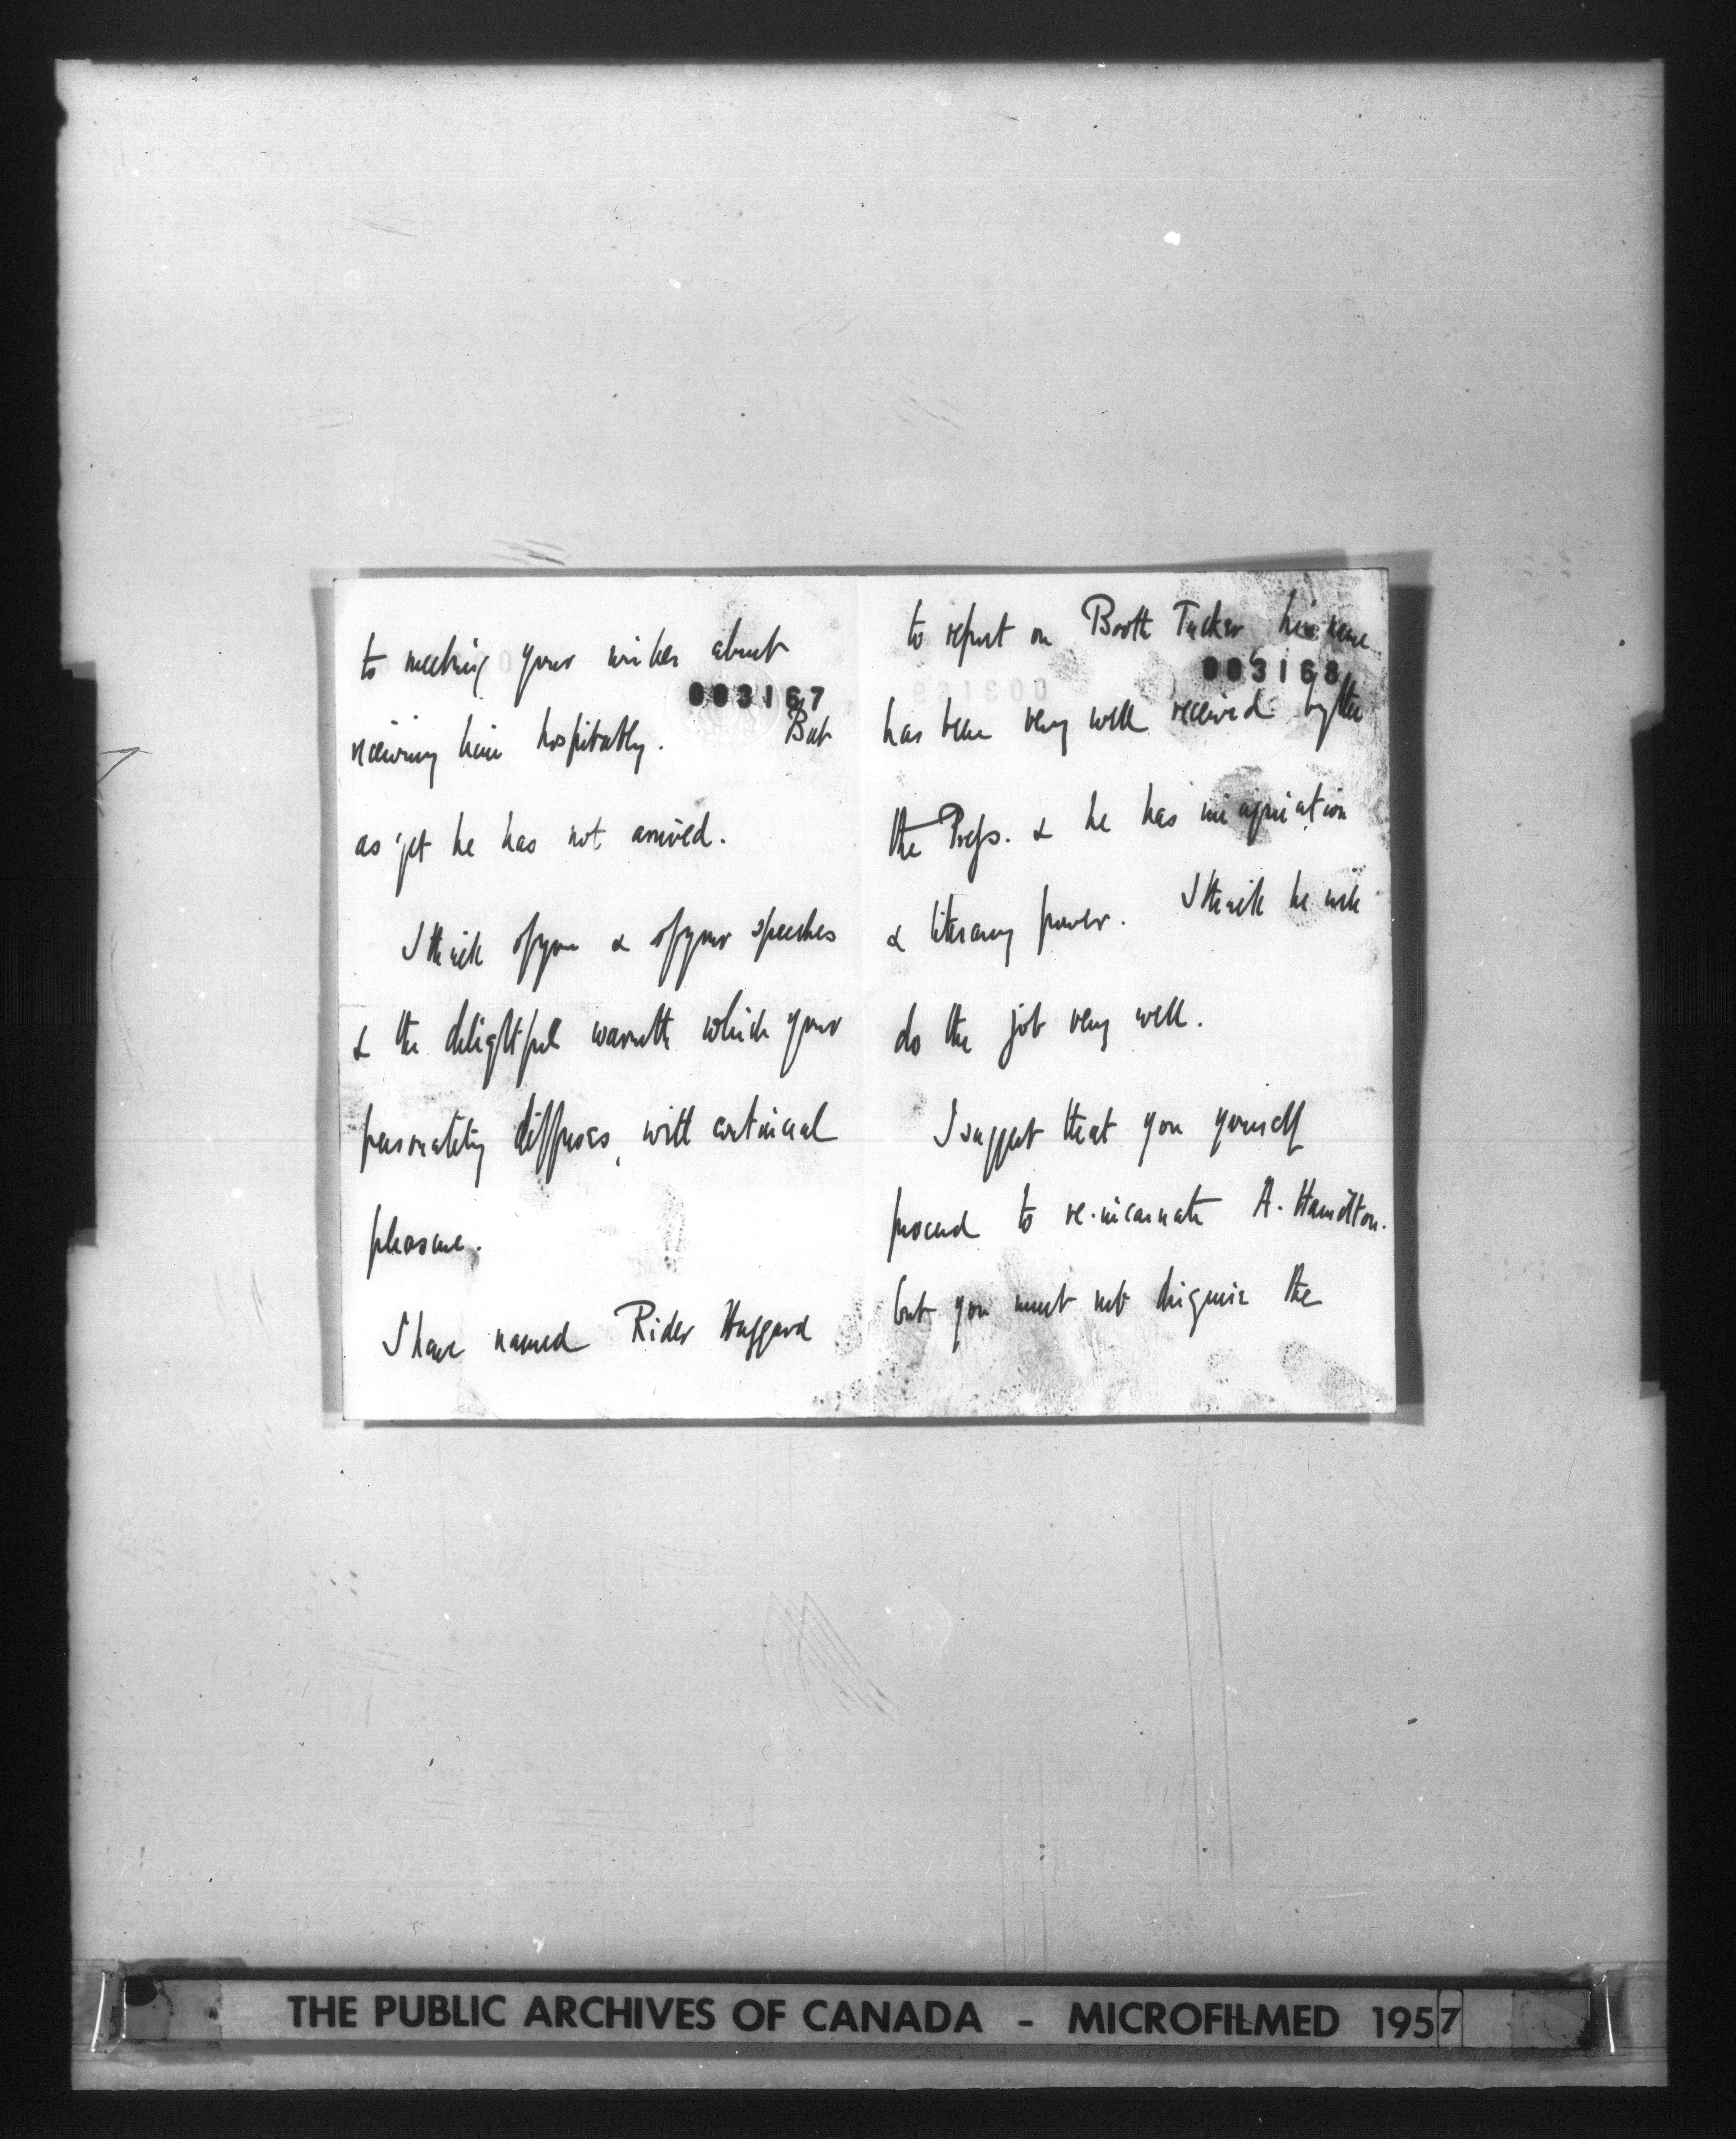 to meeting your wishes about
003167
receiving him hospitably. But
as yet he has not arrived.
I think of you & of your speeches
& the delightful warmth which your
personality diffuses, with continual
pleasure.
I have named Rider Haggard
to report on Booth Tucker, his name
003168
has been very well received by the
the Press. & he has imagination
& literary power. I think he will
do the job very well.
I suggest that you yourself
proceed to re-incarnate A. Hamilton.
but you must not disguise the
THE PUBLIC ARCHIVES OF CANADA - MICROFILMED 1957